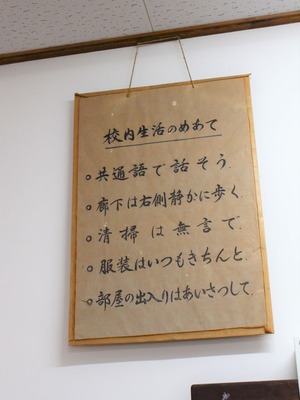 校内生活のめあて
○共通語で話そう.
○廊下は右側静かに歩く.
○清掃は無言で.
○服装はいつもきちんと.
○部屋の出入りはあいさつして.